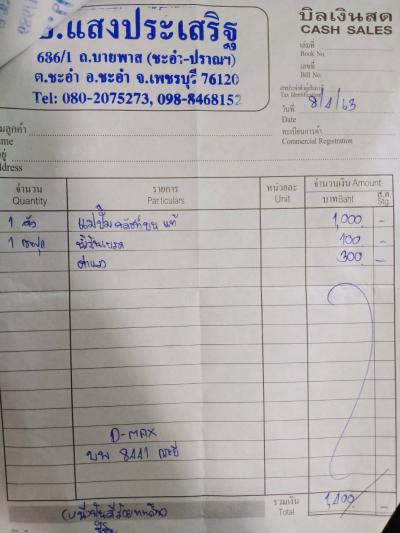 ช.แสงประเสริฐ
686/1 ถ.บายพาส (ชะอำ-ปราณฯ)
ต.ชะอำ อ.ชะอำ จ.เพชรบุรี 76120
Tel: 080-2075273, 098-8468152
บิลเงินสด
CASH SALES
เล่มที่
Book No.
เลขที่
Bill No.
เลขประจำตัวผู้เสียภาษี
Tax Identification
วันที่ 8/1/63
Date
ทะเบียนการค้า
Commercial Registration
มลูกค้า
ame
อยู่
ddress
จำนวน รายการ หน่วยละ จำนวนเงิน Amount
Quantity Particulars Unit บาท Baht ส.ต. Stg.
1 ตัว แม่ปั๊มคลัทช์บน แท้ 1,000 -
1 กระปุก น้ำมันเบรค 100 -
ค่าแรง 300 -
D-MAX
บพ 8441 กระบี่
รวมเงิน 1,400 -
Total
(หนึ่งพันสี่ร้อยบาทถ้วน)